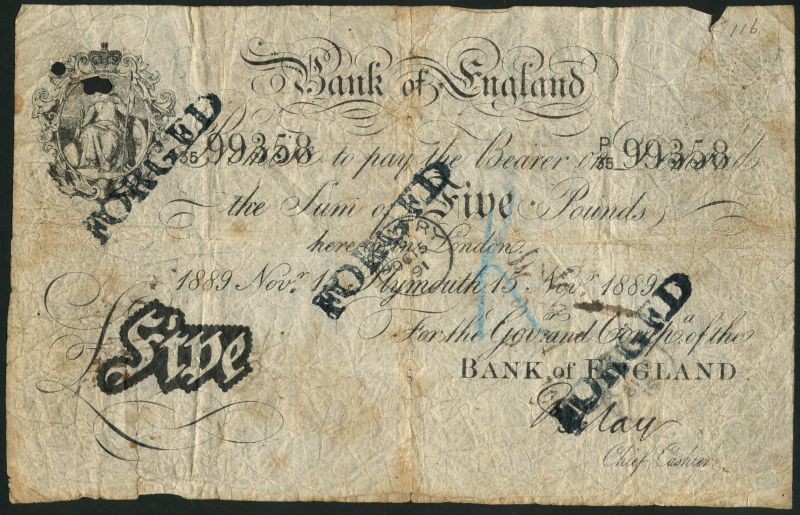 116
Bank of England
FORGED
P/35 99358 P/35 99358
to pay the Bearer on
the Sum of Five Pounds
FORGED
here or in London
1889 Novr. 15 Plymouth 15 Novr. 1889
For the Govr. and Compa. of the
Five
BANK of ENGLAND
FORGED
May
Chief Cashier.